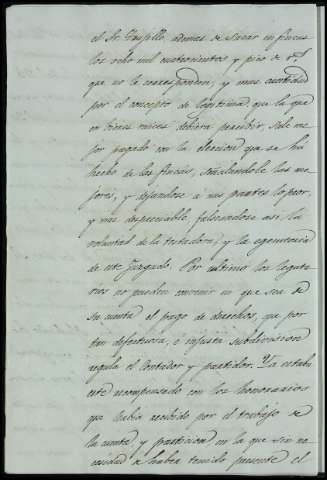 el Sr. Trujillo, ademas de sacar en fincas
los ocho mil cuatrocientos y pico de rs.
que no le corresponden, y mas cantidad
por el concepto de legitima, que la que
en bienes raices debiera percibir, sale me
jor pagado con la eleccion que se há
hecho de las fincas, señalandole las me
jores, y dejandose á mis partes lo peor,
y mas despreciable, falseandose asi, la
voluntad de la testadora, y la
de este Juzgado. Por ultimo los legata
rios no pueden convenir en que sea de
su cuenta el pago de derechos, que por
tan defectuosa, é injusta subdivision
regula el Contador y partidor. Ya estaba
este recompensado con los honorarios
que habia recibido por el trabajo de
la cuenta y particion en la que sin ne
cesidad de haber tenido presente el